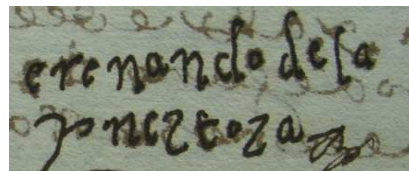 erenando dela
yoneztoza